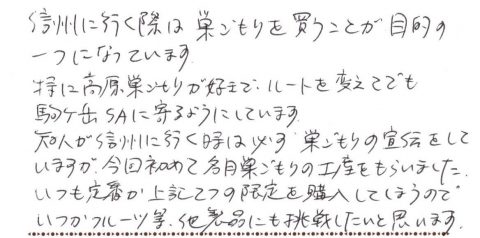 信州に行く際は巣ごもりを買うことが目的の
一つになっています.
特に高原巣ごもりが好きで.ルートを変えてでも
駒ケ岳SAに寄るようにしています.
知人が信州に行く時は必ず巣ごもりの宣伝をして
いますが.今回初めて名月巣ごもりの土産をもらいました.
いつも定番か上記2つの限定を購入してしまうので
いつかフルーツ等.他製品にも挑戦したいと思います.